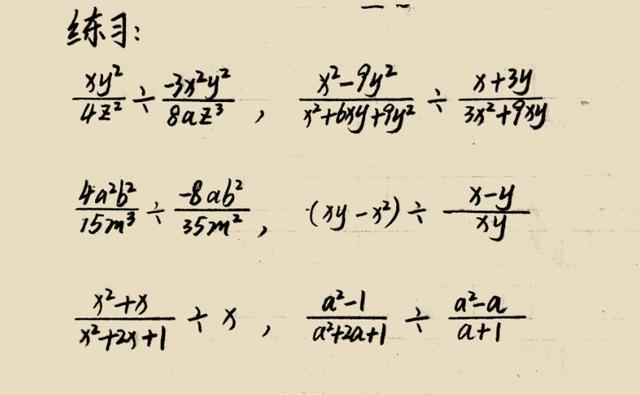 练习:
xy²/4z² ÷ -3x²y²/8az³ , x²-9y²/x²+6xy+9y² ÷ x+3y/3x²+9xy
4a²b²/15m³ ÷ -8ab²/35m² , (xy-x²) ÷ x-y/xy
x²+x/x²+2x+1 ÷ x , a²-1/a²+2a+1 ÷ a²-a/a+1